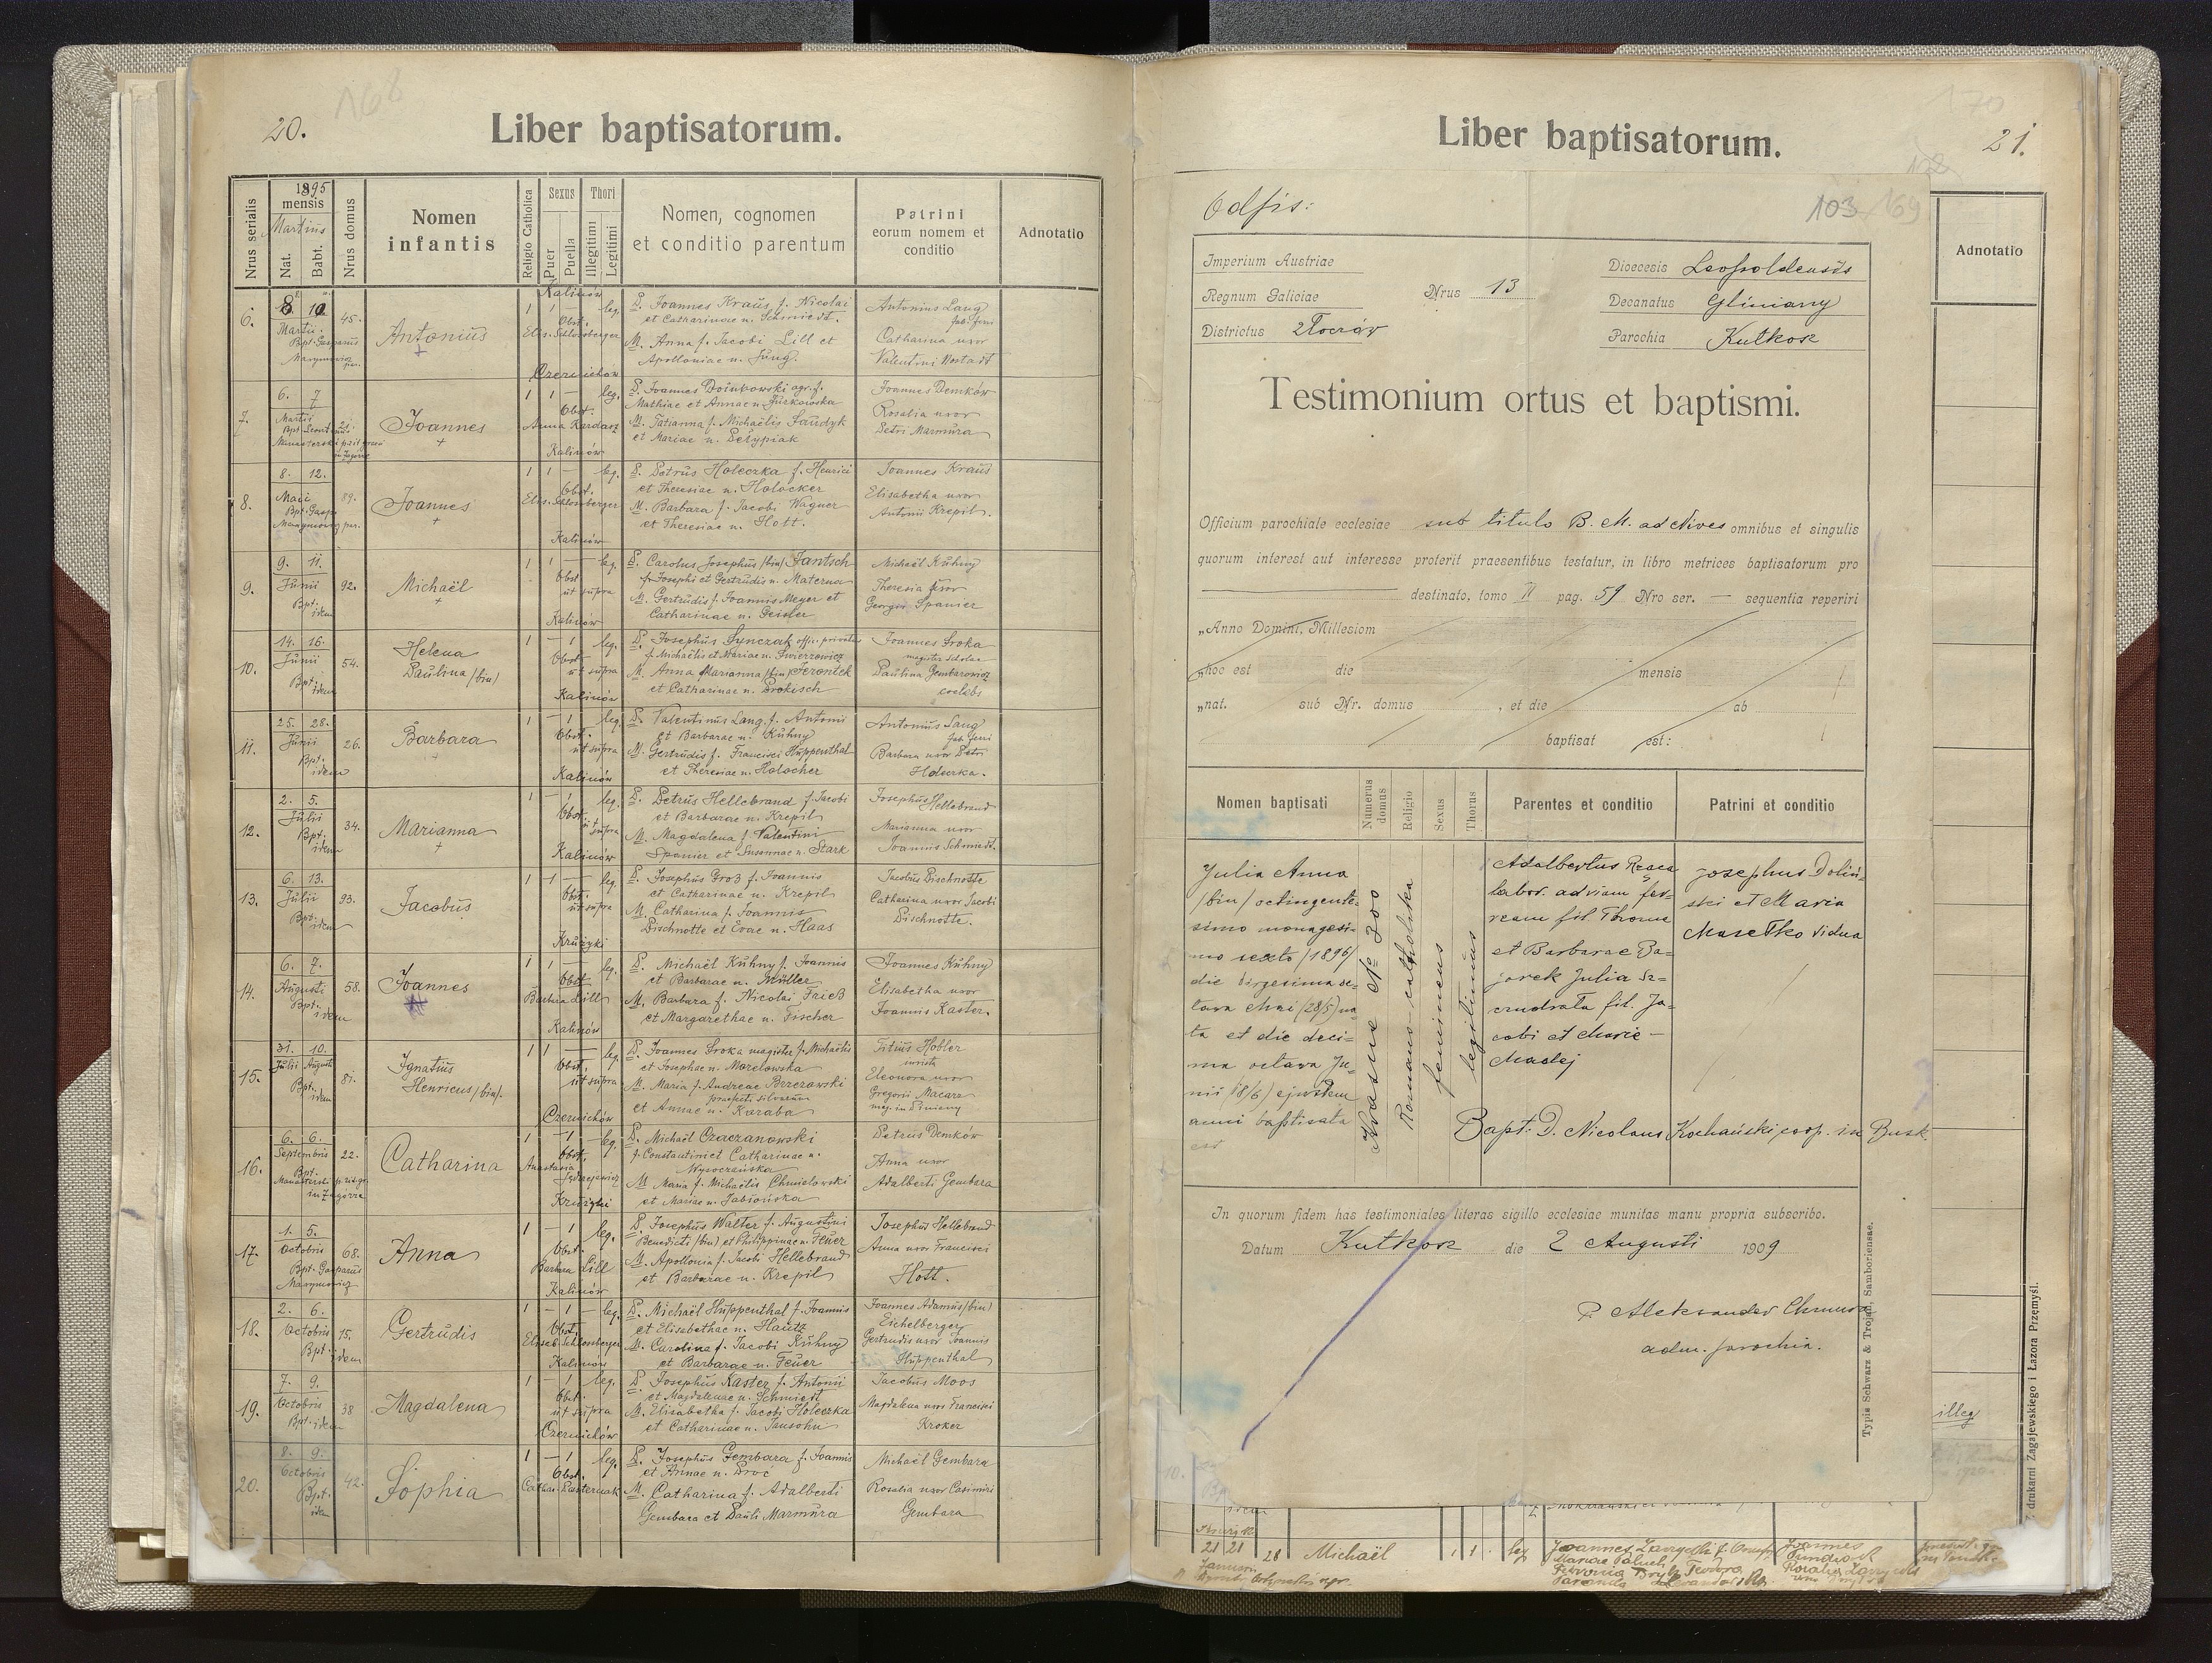 168
20.
Liber baptisatorum.
Nrus serialis
1895
mensis
Martius
Nat.
Babt.
Nrus domus
Nomen
infantis
Religio Catholica
Sexus
Puer
Puella
Thori
Illegitimi
Legitimi
Nomen, cognomen
et conditio parentum
Patrini
eorum nomem et
conditio
Adnotatio
6.
8 10
Martii
45.
Antonius
Kalinów
1 1 leg.
Obst.
P. Joannes Kraus f. Nicolai
et Catharinae n. Schmiedt.
M. Anna f. Jacobi Lill et
Apolloniae n. Jung.
Antonius Lang
Catharina uxor
Valentini
7.
6. 7
Martii
Joannes
Czernichów
1 1 leg.
Obst.
Anna Kardasz
P. Joannes Doinbowski agr. f.
Mathiae et Annae n. Jurkowska
M. Tatianna f. Michaëlis
et Mariae n.
Joannes Demków
Rosalia uxor
Petri Marmura
8.
8. 12.
Maii
89.
Joannes
Kalinów
1 1 — leg.
Obst.
P. Petrus Holeczka f. Henrici
et Theresiae n. Holocker
M. Barbara f. Jacobi Wagner
et Theresiae n. Hott.
Joannes Kraus
Elisabetha uxor
Antonii Krepil.
9.
9. 11.
Junii
Bpt. idem
92.
Michaël
Kalinów
1 1 — leg.
Obst
ut supra
P. Carolus Josephus /bin/ Jantsch
f. Josephi et Gertrudis n. Materna
M. Gertrudis f. Joannis Meyer et
Catharinae n. Geisler
Michaël Kuhny
Theresia uxor
Georgii Spanier
10.
14. 16.
Junii
Bpt. idem
54.
Helena
Paulina /bin/
Kalinów
1 — 1 leg.
Obst.
ut supra
P. Josephus Synczak offic. privatus
f. Michaëlis et Mariae n. Zwierzowicz
M. Anna Marianna /bin/
et Catharinae n. Prokisch
Joannes Sroka
magister scholae
Paulina Gembarowicz
coelebs
11.
25. 28.
Junii
Bpt. idem
26.
Barbara
Kalinów
1 — 1 leg.
Obst.
ut supra
P. Valentinus Lang. f. Antonii
et Barbarae n. Kuhny
M. Gertrudis f. Francisci Huppenthal
et Theresiae n. Holocher
Antonius Lang
Barbara uxor Petri
12.
2. 5.
Julii
Bpt. idem
34.
Marianna
Kalinów
1 — 1 leg.
Obst.
ut supra
P. Petrus Hellebrand f. Jacobi
et Barbarae n. Krepil
M. Magdalena f. Valentini
Spanier et Susannae n. Stark
Josephus Hellebrand
Marianna uxor
Joannis Schmiedt.
13.
6. 13.
Julii
Bpt. idem
93.
Jacobus
Kalinów
1 1 — leg.
Obst.
ut supra
P. Josephus Groß f. Joannis
et Catharinae n. Krepil
M. Catharina f. Joannis
Dischnotte et Evae n. Haas
Jacobus Dischnotte
Catharina uxor Jacobi
Dischnotte.
14.
6. 7.
Augusti
Bpt. idem
58.
Joannes
Krużyki
1 1 — leg.
Obst
Barbara Lill
P. Michaël Kuhny f. Joannis
et Barbarae n. Müller
M. Barbara f. Nicolai Frieß
et Margarethae n. Fischer
Joannes Kuhny
Elisabetha uxor
Joannis Kaster.
15.
31. 10.
Julii Augusti
Bpt. idem
81.
Ignatius
Henricus /bin/.
Kalinów
1 1 — leg.
Obst.
ut supra
P. Joannes Sroka magister f. Michaëlis
et Josephae n. Morelowska
M. Maria f. Andreae Berezowski
praefecti silvarum
et Annae n. Karaba
Hobler
Eleonora uxor
Gregorii Macara
16.
6. 6.
Septembris
22.
Catharina
Czernichów
1 — 1 — leg.
Obst.
Anastasia
P. Michaël Czaczanowski
f. Constantini et Catharinae n.
Wysoczańska
M. Maria f. Michaëlis Chmielowski
et Mariae n. Jabłońska
Petrus Demków
Anna uxor
Adalberti Gembara
17.
1. 5.
Octobris
68.
Anna
Krużyki
1 — 1 leg.
Obst.
Barbara Lill
P. Josephus Walter f. Augustini
Benedicti /bin/ et Philippinae n. Feuer
M. Apollonia f. Jacobi Hellebrand
et Barbarae n. Krepil
Josephus Hellebrand
Anna uxor Francisci
Hott.
18.
2. 6.
Octobris
Bpt. idem
15.
Gertrudis
Kalinów
1 — 1 — leg.
Obst.
P. Michaël Huppenthal f. Joannis
et Elisabethae n. Hautz
M. Carolina f. Jacobi Kuhny
et Barbarae n. Feuer
Joannes Adamus /bin/
Eichelberger
Gertrudis uxor Joannis
Huppenthal
19.
7. 9.
Octobris
Bpt. idem
38
Magdalena
Kalinów
1 — 1 — leg.
Obst.
ut supra
P. Josephus Kaster f. Antonii
et Magdalenae n. Schmiedt
M. Elisabetha f. Jacobi Holeczka
et Catharinae n. Jansohn
Jacobus Moos
Magdalena uxor Francisci
Kroker
20.
8. 9.
Octobris
Bpt. idem
42.
Sophia
Czernichów
1 — 1 leg.
Obst.
Cathar. Pasternak
P. Josephus Gembara f. Joannis
et Annae n. Broć
M. Catharina f. Adalberti
Gembara et Pauli Marmura
Michaël Gembara
Rosalia uxor Casimiri
Gembara
170
21.
Liber baptisatorum.
Adnotatio
103 169
Odpis:
Imperium Austriae
Regnum Galiciae
Districtus Złoczów
Nrus 13
Dioecesis Leopoldensis
Decanatus Gliniany
Parochia Kutkorz
Testimonium ortus et baptismi.
Officium parochiale ecclesiae sub titulo B. M. ad Nives omnibus et singulis
quorum interest aut interesse proterit praesentibus testatur, in libro metrices baptisatorum pro
destinato, tomo II pag. 59 Nro ser. — sequentia reperiri
„Anno Domini, Millesiom
„hoc est die mensis
„nat. sub Nr. domus , et die ab
baptisat est:
Nomen baptisati
Numerus domus
Religio
Sexus
Thorus
Parentes et conditio
Patrini et conditio
Julia Anna
/bin/ octingente-
simo nonagesi-
mo sexto /1896/
die vigesima oc-
tava Maii (28/5) na
ta et die deci-
ma octava Ju-
nii (18/6) ejusdem
anni baptisata
est
Krasne Nº 200
Romano-catholica
femineus
legitimus
Adalbertus
labor. ad viam fer-
ream fil. Thomae
et Barbarae Ba-
jorek Julia Sz-
fil. Ja-
cobi et Marie
Maciej
Josephus Doliń-
ski et Maria
Masełko vidua
Bapt: D. Nicolaus Kochański coop. in Busk
In quorum fidem has testimoniales literas sigillo ecclesiae munitas manu propria subscribo.
Datum Kutkorz die 2 Augusti 1909
Aleksander
adm. parochiae.
Typis Schwarz & Trojan, Samboriensae.
drukarni Zagajewskiego i Łazora Przemyśl.
illeg
10.
idem
21 21
Januarii
28
Michaël
1 1 leg
Joannes
Petronia
Joannes
Rosalia